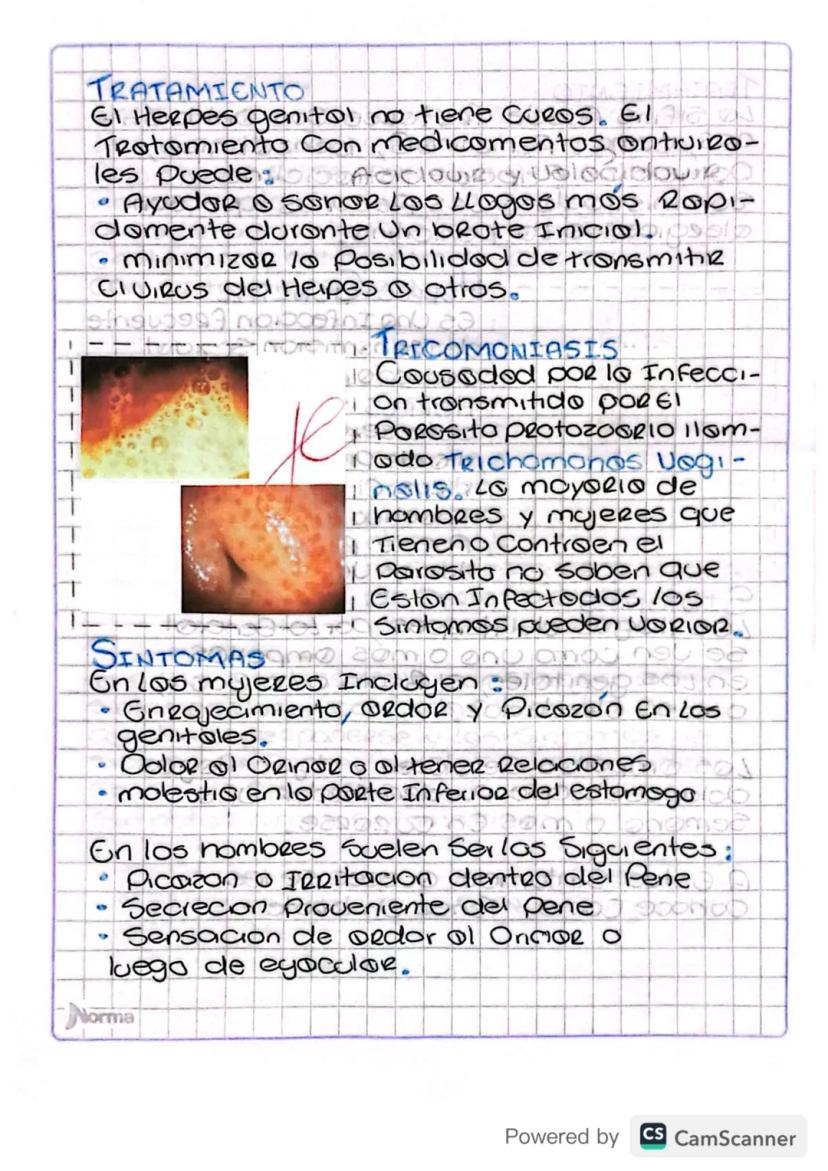 TRATAMIENTO
El Herpes genital no tiene curas. El
Tratamiento con medicamentos antivira-
les Puede:
• Ayudar a sanar las llagas más Rapi-
damente durante un brote Inicial.
• minimizar la Posibilidad de transmitir
el virus del Herpes a otros.
TRICOMONIASIS
Causadad por la Infecci-
on transmitida por El
Parasito protozoario llam-
ado Trichomonas Vagi-
nalis. La mayoria de
hombres y mujeres que
Tienen o Contraen el
Parasito no saben que
Estan Infectados los
Sintomas pueden variar.
SINTOMAS
En las mujeres Incluyen:
• Enrojecimiento, ardor y Picazón En Las
genitales.
• Dolor al Orinar o al tener Relaciones
• molestia en la parte Inferior del estomago
En los hombres Suelen Ser las Siguientes:
• Picazon o Irritacion dentro del Pene
• Secrecion Proveniente del pene
• Sensacion de ardor al Orinar o
luego de eyacular.
Norma
Powered by CS CamScanner